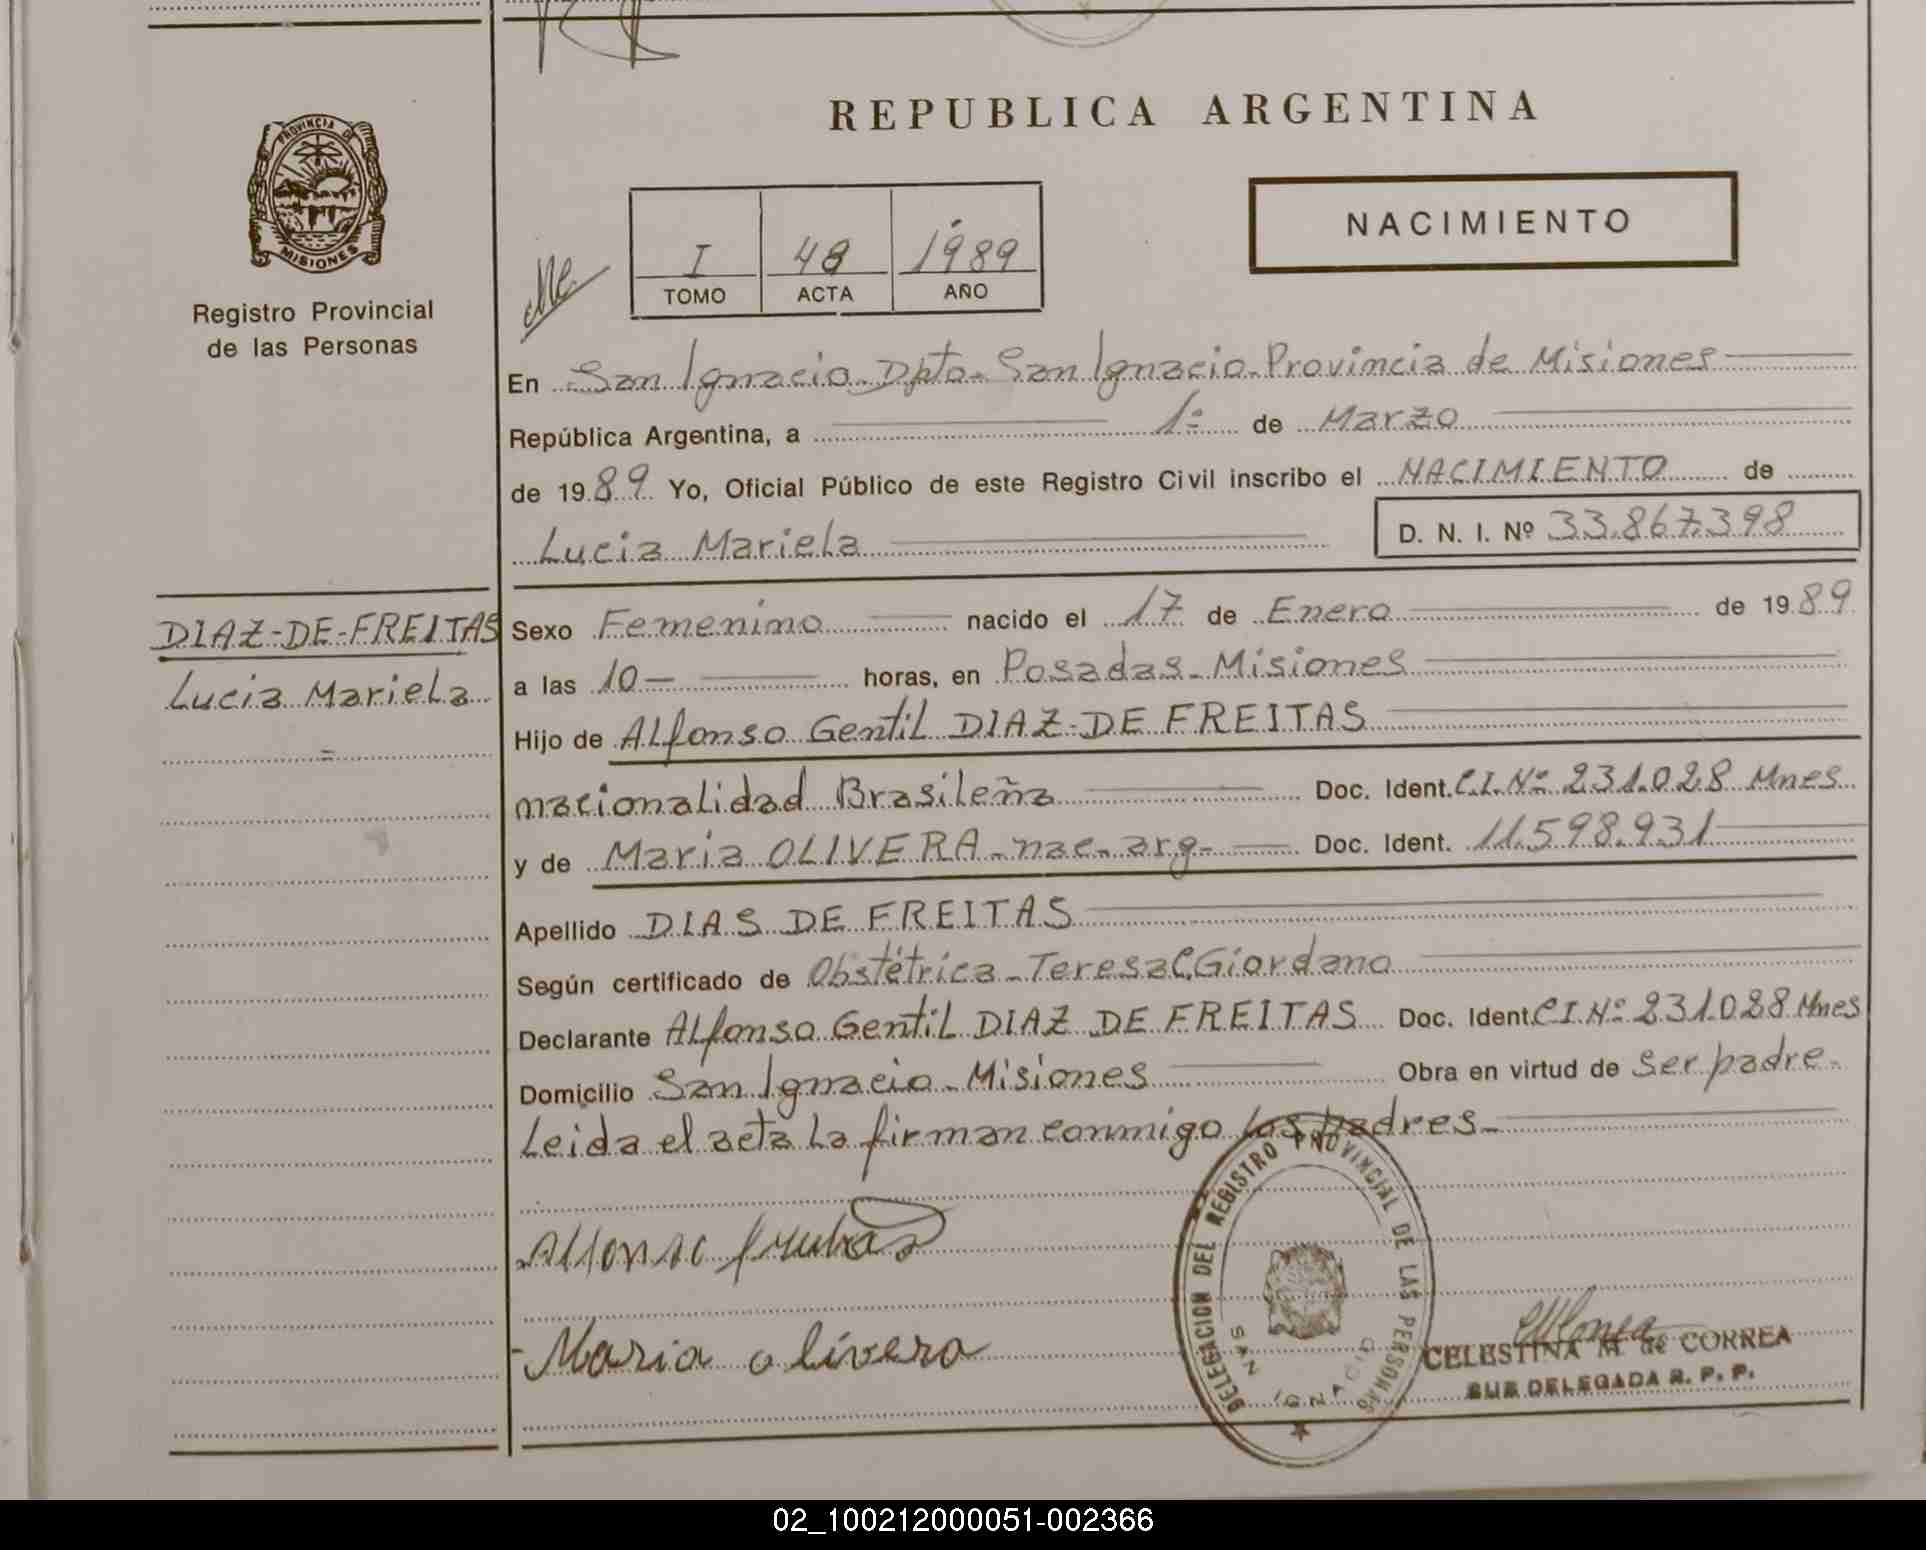 REPUBLICA ARGENTINA
PROVINCIA DE
MISIONES
Registro Provincial
de las Personas
NACIMIENTO
I 48 1989
TOMO ACTA AÑO
En San Ignacio-Dpto-San Ignacio-Provincia de Misiones
República Argentina, a 1º de Marzo
de 1989 Yo, Oficial Público de este Registro Civil inscribo el NACIMIENTO de
Lucia Mariela D. N. I. Nº 33.867.398
DIAZ-DE-FREITAS
Lucia Mariela
Sexo Femenino nacido el 17 de Enero de 1989
a las 10- horas, en Posadas-Misiones
Hijo de Alfonso Gentil DIAZ-DE FREITAS
nacionalidad Brasileña Doc. Ident. C.I.Nº 231.028 Mnes
y de Maria OLIVERA-nac-arg- Doc. Ident. 11.598.931
Apellido DIAS DE FREITAS
Según certificado de Obstétrica-Teresa C. Giordano
Declarante Alfonso Gentil DIAZ DE FREITAS Doc. Ident. C.I.Nº 231.028 Mnes
Domicilio San Ignacio-Misiones Obra en virtud de Ser padre-
Leida el acta la firman conmigo los padres-
Alfonso
Maria olivera
DELEGACION DEL REGISTRO PROVINCIAL DE LAS PERSONAS
SAN IGNACIO
CELESTINA M. de CORREA
SUB DELEGADA R. P. P.
02_100212000051-002366